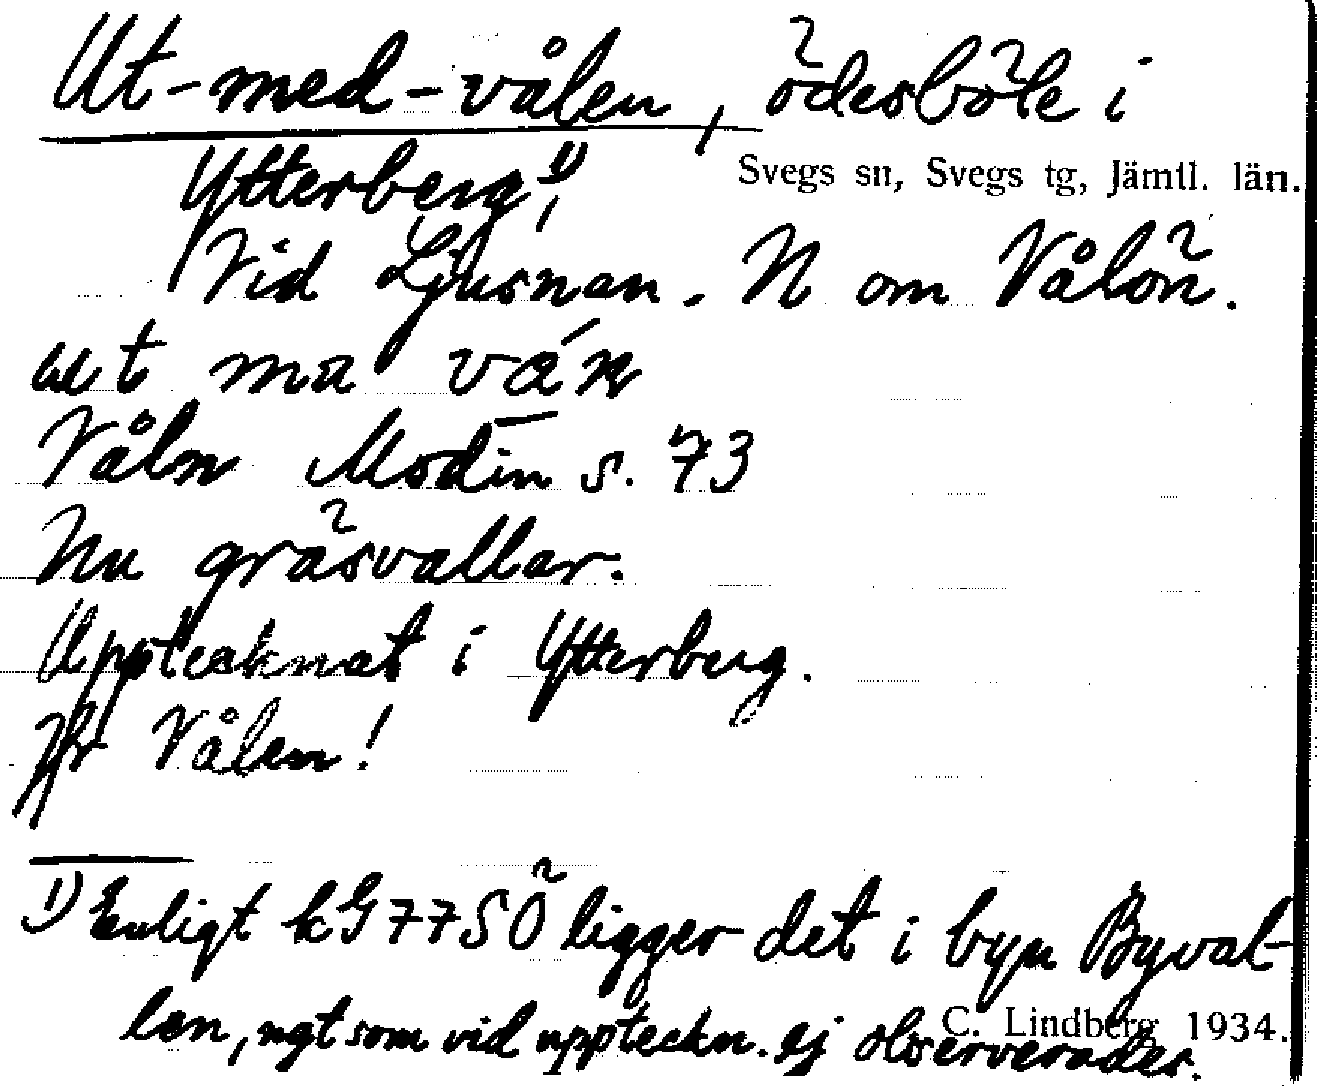 Ut-med-vålen, ödesböle i
Ytterberg,¹⁾ Svegs sn, Svegs tg, Jämtl. län.
Vid Ljusnan. N om Vålön.
ut ma
Våln Modin s. 73
Nu gräsvallar.
Upptecknat i Ytterberg.
Jfr Vålen!
¹⁾ Enligt kG77SÖ ligger det i byn Byval-
len, ngt som vid uppteckn. ej observerades.
C. Lindberg 1934.